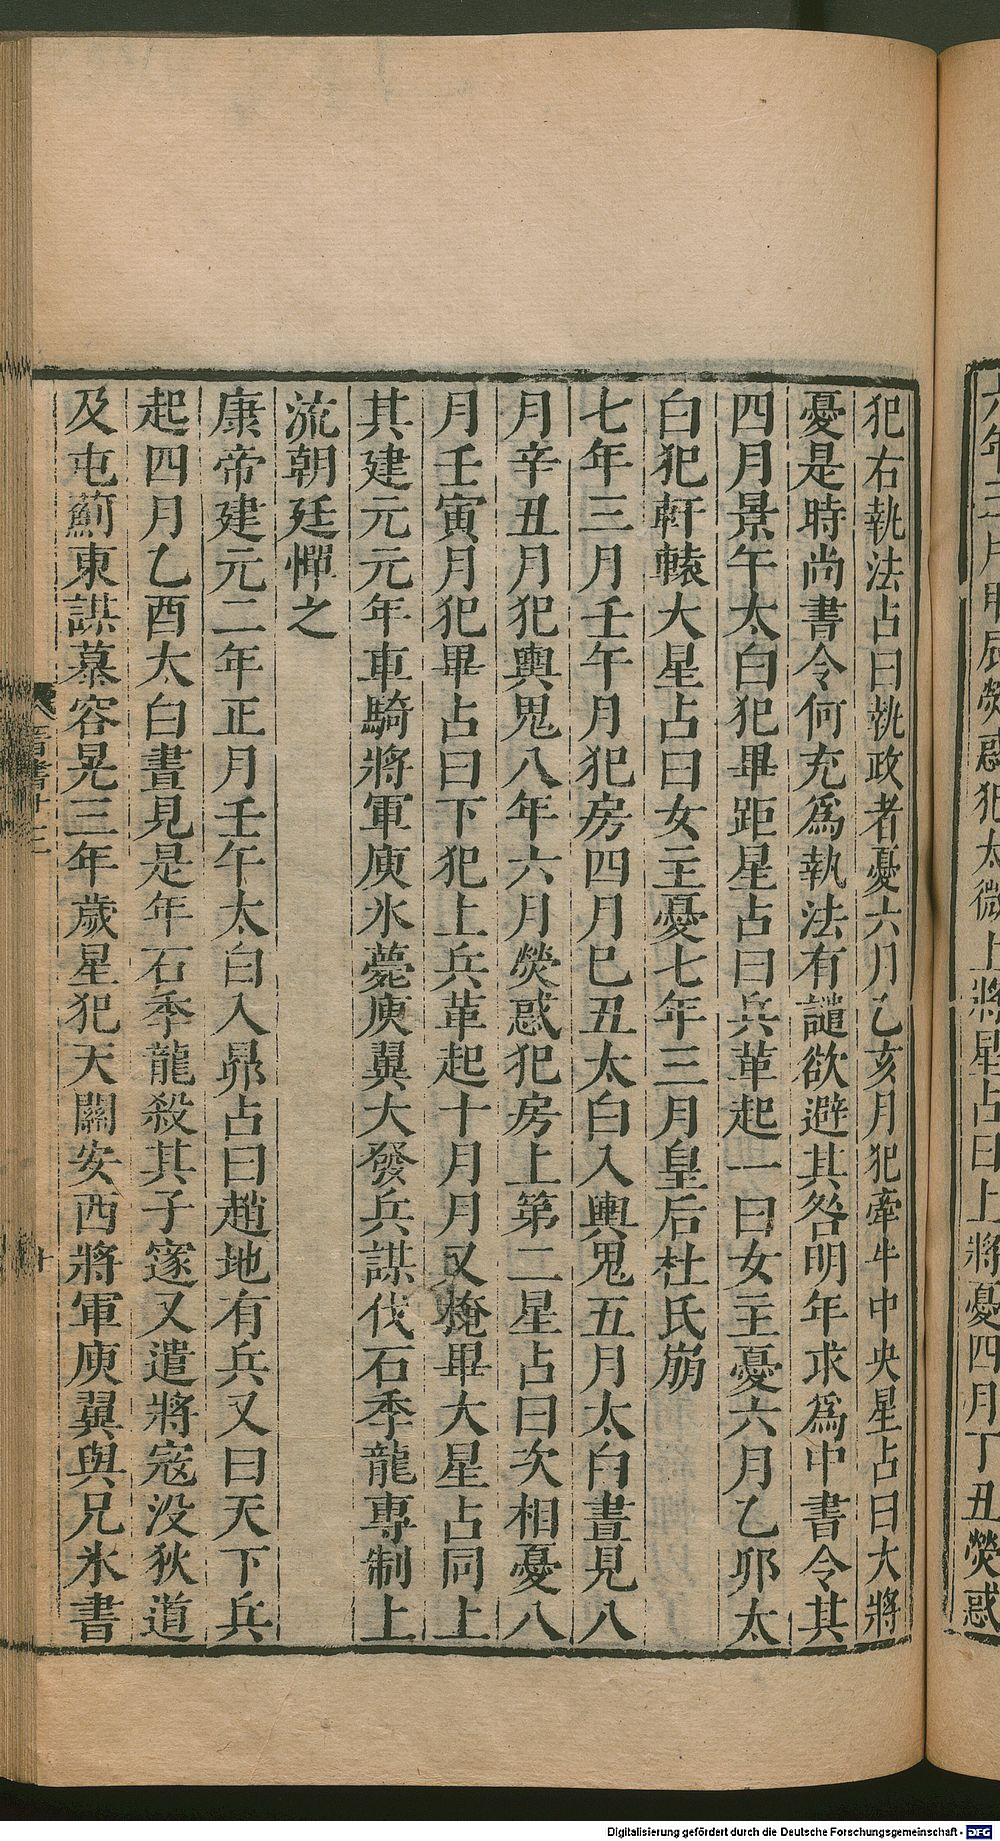 六年二月甲辰熒惑犯太微上將星占曰上將憂四月丁丑熒惑
犯右執法占曰執政者憂六月乙亥月犯牽牛中央星占曰大將
憂是時尚書令何充爲執法有譴欲避其咎明年求爲中書令其
四月景午太白犯畢距星占曰兵革起一曰女主憂六月乙卯太
白犯軒轅大星占曰女主憂七年三月皇后杜氏崩
七年三月壬午月犯房四月巳丑太白入輿鬼五月太白晝見八
月辛丑月犯輿鬼八年六月熒惑犯房上第二星占曰次相憂八
月壬寅月犯畢占曰下犯上兵革起十月月又掩畢大星占同上
其建元元年車騎將軍庾氷薨庾翼大發兵謀伐石季龍專制上
流朝廷憚之
康帝建元二年正月壬午太白入昴占曰趙地有兵又曰天下兵
起四月乙酉太白晝見是年石季龍殺其子邃又遣將寇没狄道
及屯薊東謀慕容晃三年歲星犯天關安西將軍庾翼與兄氷書
晉書十三
十
Digitalisierung gefördert durch die Deutsche Forschungsgemeinschaft - DFG